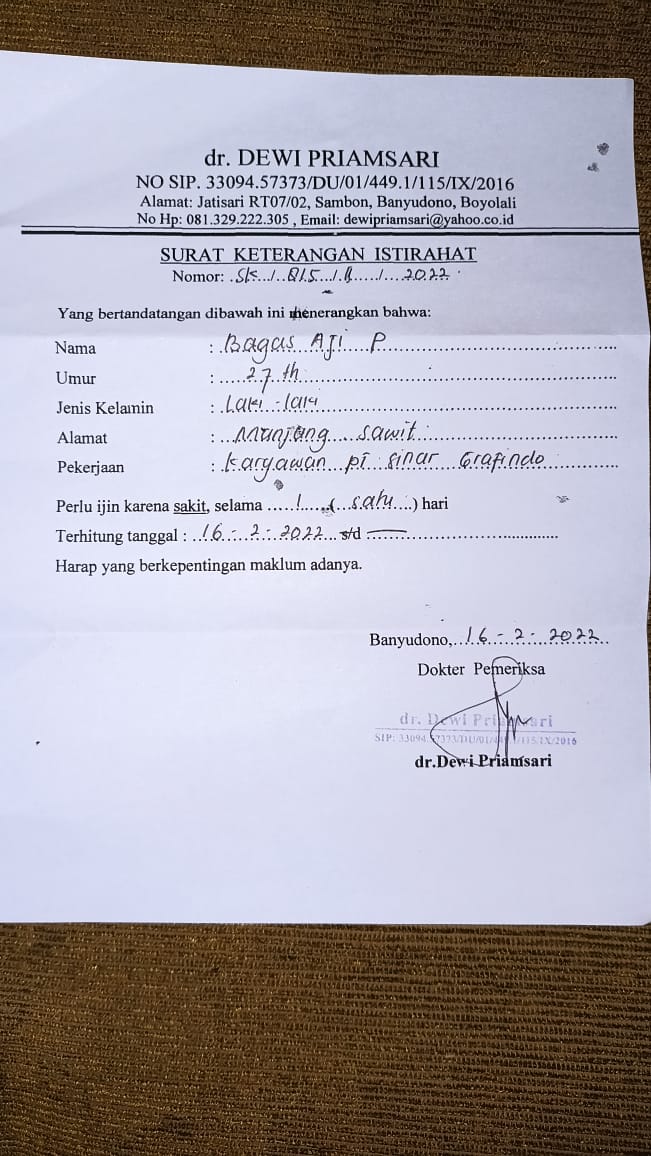 dr. DEWI PRIAMSARI
NO SIP. 33094.57373/DU/01/449.1/115/IX/2016
Alamat: Jatisari RT07/02, Sambon, Banyudono, Boyolali
No Hp: 081.329.222.305 , Email: dewipriamsari@yahoo.co.id
SURAT KETERANGAN ISTIRAHAT
Nomor: SK / / / 2022
Yang bertandatangan dibawah ini menerangkan bahwa:
Nama : Bagas Aji P
Umur : 27 th
Jenis Kelamin : Laki-laki
Alamat : Manjung sawit
Pekerjaan : Karyawan PT sinar Grafindo
Perlu ijin karena sakit, selama 1 (satu) hari
Terhitung tanggal : 16-2-2022 s/d —
Harap yang berkepentingan maklum adanya.
Banyudono, 16-2-2022
Dokter Pemeriksa
dr. Dewi Priamsari
SIP: 33094.57373/DU/01/449.1/115/IX/2016
dr.Dewi Priamsari